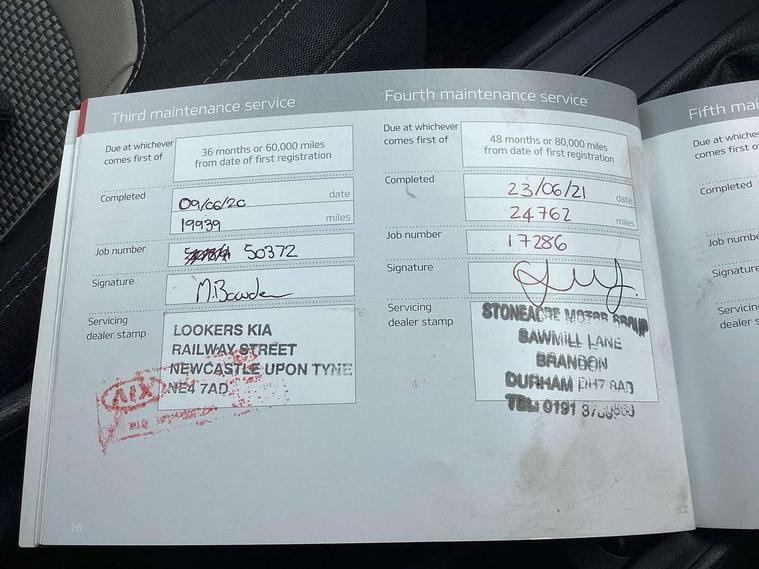 Third maintenance service
Due at whichever
comes first of
36 months or 60,000 miles
from date of first registration
Completed
09/06/20
date
19939
miles
Job number
50372
Signature
M.Bowden
Servicing
dealer stamp
LOOKERS KIA
RAILWAY STREET
NEWCASTLE UPON TYNE
NE4 7AD
KIA
16
Fourth maintenance service
Due at whichever
comes first of
48 months or 80,000 miles
from date of first registration
Completed
23/06/21
date
24762
miles
Job number
17286
Signature
Servicing
dealer stamp
STONEACRE MOTOR GROUP
SAWMILL LANE
BRANDON
DURHAM DH7 8AD
TEL: 0191
Fifth mai
Due at whiche
comes first o
Completed
Job numbe
Signature
Servicin
dealer s